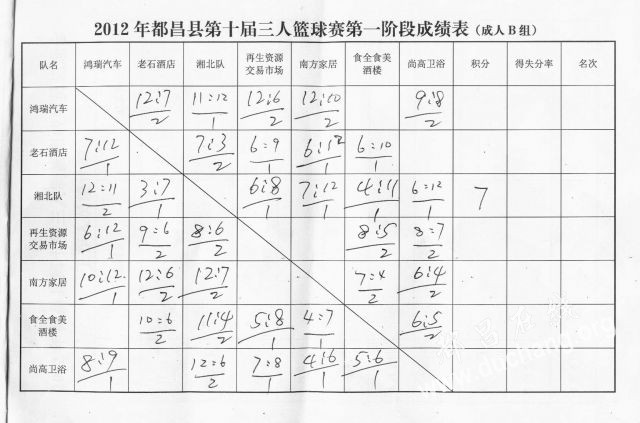 2012年都昌县第十届三人篮球赛第一阶段成绩表（成人B组）
队名 鸿瑞汽车 老石酒店 湘北队 再生资源交易市场 南方家居 食全食美酒楼 尚高卫浴 积分 得失分率 名次
鸿瑞汽车 12:7/2 11:12/1 12:6/2 12:10/2 9:8/2
老石酒店 7:12/1 7:3/2 6:9/1 6:12/1 6:10/1
湘北队 12:11/2 3:7/1 6:8/1 7:12/1 4:11/1 6:12/1 7
再生资源交易市场 6:12/1 9:6/2 8:6/2 8:5/2 8:7/2
南方家居 10:12/1 12:6/2 12:7/2 7:4/2 6:4/2
食全食美酒楼 10:6/2 11:4/2 5:8/1 4:7/1 6:5/2
尚高卫浴 8:9/1 12:6/2 7:8/1 4:6/1 5:6/1